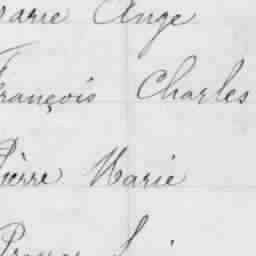 Marie Ange
François Charles
Pierre Marie